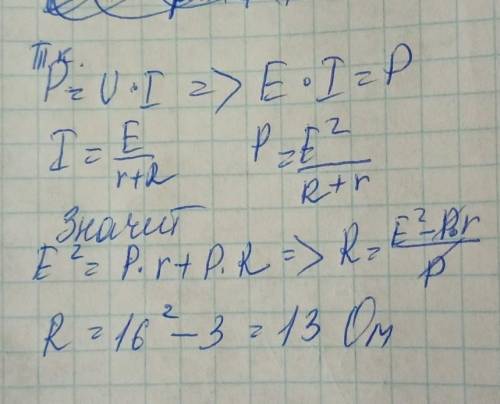 Т.к.
P = U · I => E · I = P
I = E/(r+R)   P = E²/(R+r)
Значит
E² = P·r + P·R => R = (E² - P·r)/P
R = 16² - 3 = 13 Ом